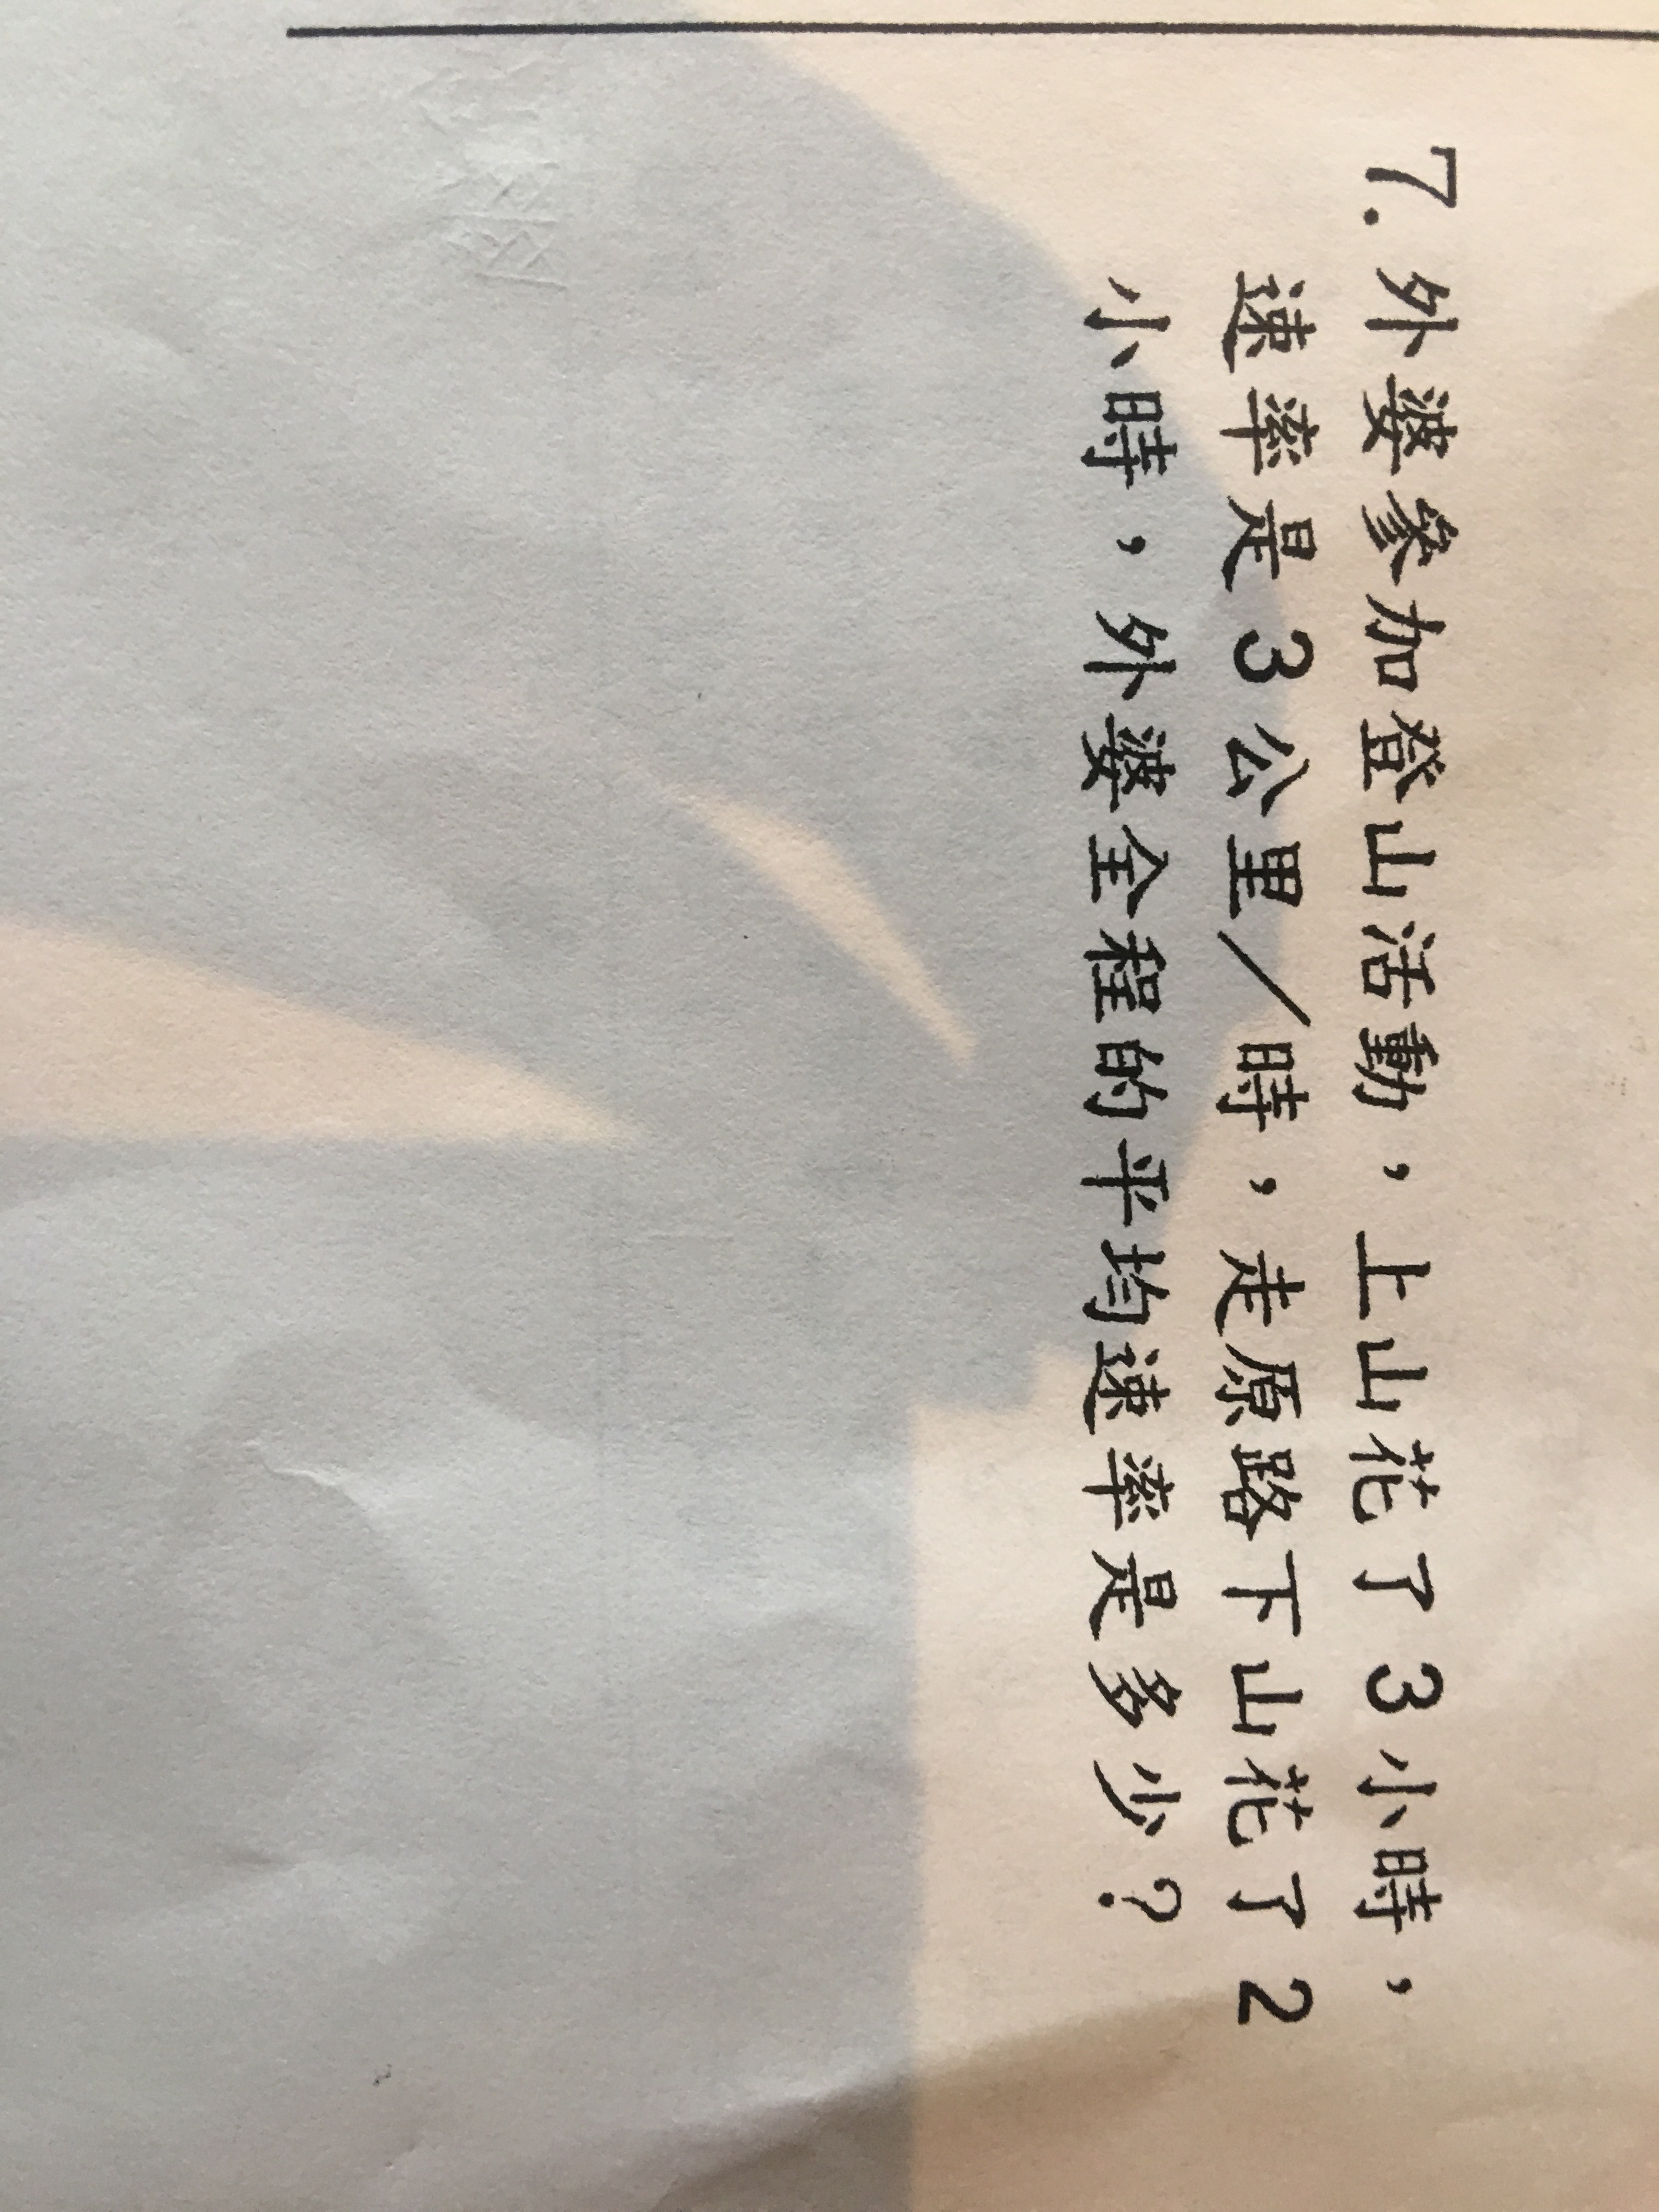 7. 外婆參加登山活動，上山花了3小時，
速率是3公里／時，走原路下山花了2
小時，外婆全程的平均速率是多少？